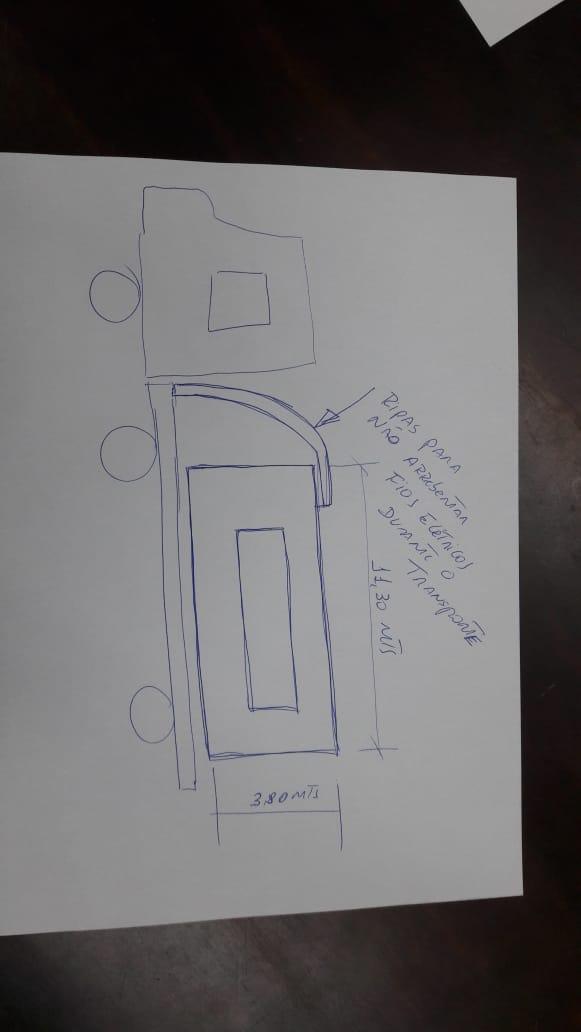 RIPAS PARA
NÃO ARREBENTAR
FIOS ELÉTRICOS
DURANTE O
TRANSPORTE
11,30 MTS
3,80 MTS